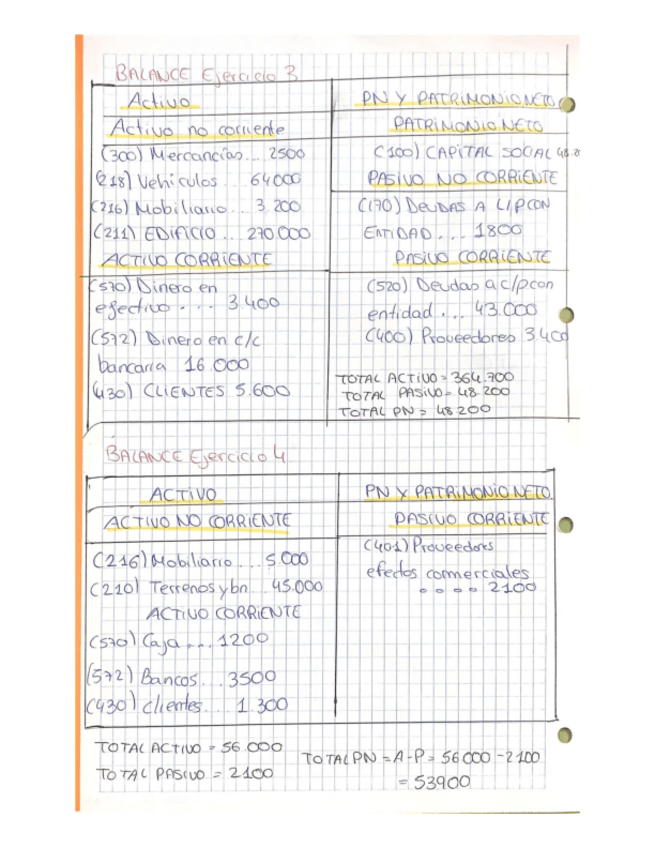 BALANCE Ejercicio 3
Activo
PN Y PATRIMONIO NETO
Activo no corriente
PATRIMONIO NETO
(300) Mercancías... 2500
(100) CAPITAL SOCIAL
(218) Vehículos... 64000
PASIVO NO CORRIENTE
(216) Mobiliario... 3.200
(170) DEUDAS A L/P CON
(211) EDIFICIO... 270.000
ENTIDAD.... 1800
ACTIVO CORRIENTE
PASIVO CORRIENTE
(570) Dinero en
efectivo.... 3.400
(520) Deudas a c/p con
entidad... 43.000
(572) Dinero en c/c
bancaria 16.000
(400) Proveedores 3.400
(430) CLIENTES 5.600
TOTAL ACTIVO = 364.700
TOTAL PASIVO = 48.200
TOTAL PN = 48.200
BALANCE Ejercicio 4
ACTIVO
PN Y PATRIMONIO NETO
ACTIVO NO CORRIENTE
PASIVO CORRIENTE
(216) Mobiliario.... 5.000
(401) Proveedores
efectos comerciales
.... 2100
(210) Terrenos y bn... 45.000
ACTIVO CORRIENTE
(570) Caja.... 1200
(572) Bancos... 3500
(430) clientes.... 1.300
TOTAL ACTIVO = 56.000
TOTAL PASIVO = 2100
TOTAL PN = A-P = 56000 - 2100
= 53900